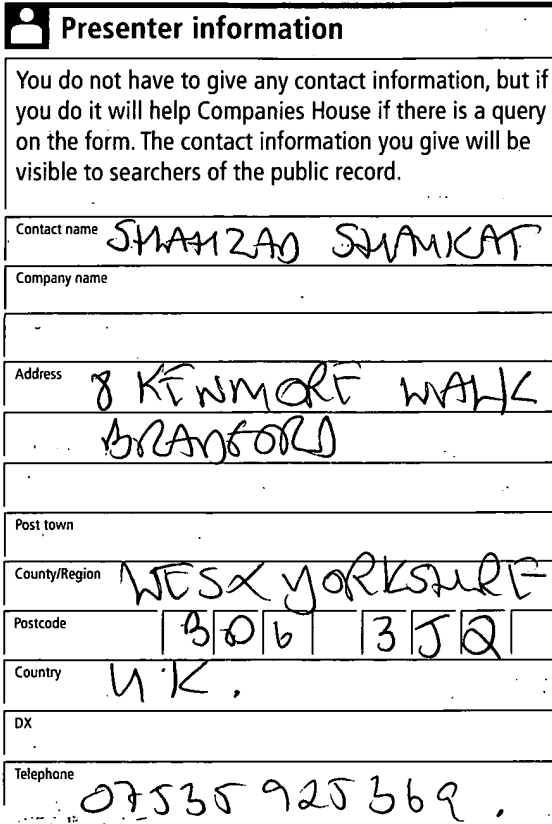 Presenter information
You do not have to give any contact information, but if
you do it will help Companies House if there is a query
on the form. The contact information you give will be
visible to searchers of the public record.
Contact name SHAHZAD SHAUKAT
Company name
Address 8 KENMORE WALK
BRADFORD
Post town
County/Region WEST YORKSHIRE
Postcode BD6 3JQ
Country U.K.
DX
Telephone 07535 925369.